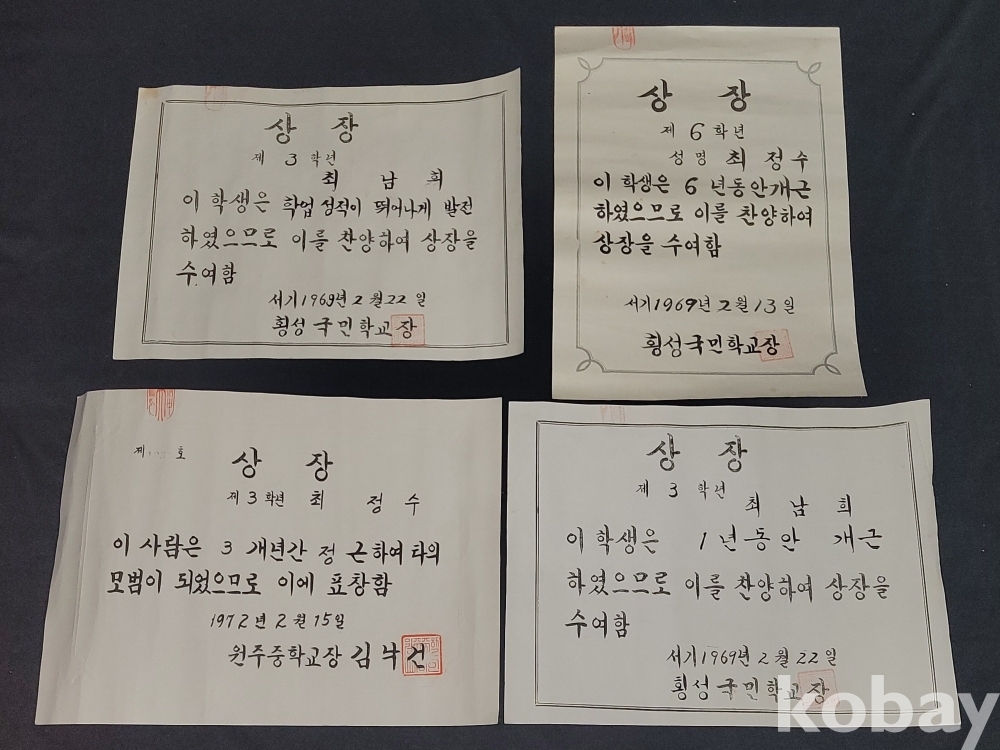 상 장
제 3 학년
최 남 희
이 학생은 학업 성적이 뛰어나게 발전
하였으므로 이를 찬양하여 상장을
수여함
서기1969년 2월 22일
횡성국민학교장
상 장
제 6 학년
성명 최정수
이 학생은 6년동안개근
하였으므로 이를 찬양하여
상장을 수여함
서기1969년 2월 13일
횡성국민학교장
제 호
상 장
제 3 학년 최 정 수
이 사람은 3 개년간 정 근하여 타의
모범이 되었으므로 이에 표창함
1972년 2월 15일
원주중학교장 김낙건
상 장
제 3 학년
최 남 희
이학생은 1년동안 개근
하였으므로 이를 찬양하여 상장을
수여함
서기1969년 2월 22일
횡성국민학교장
kobay